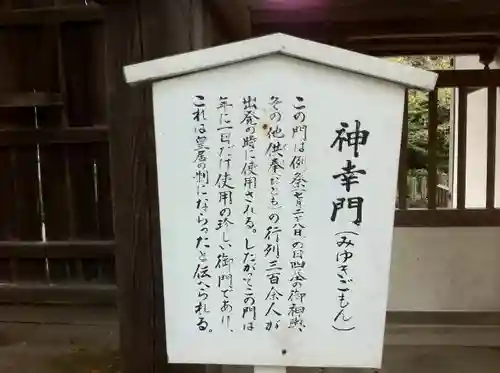 神幸門(みゆきごもん)
この門は例祭(七月二十八日)の日四基の御神輿、
その他供奉(ぐぶ)の行列三百余人が
出発の時に使用される。したがってこの門は
年に一回だけ使用の珍しい御門であり、
これは皇居の制にならったと伝へられる。